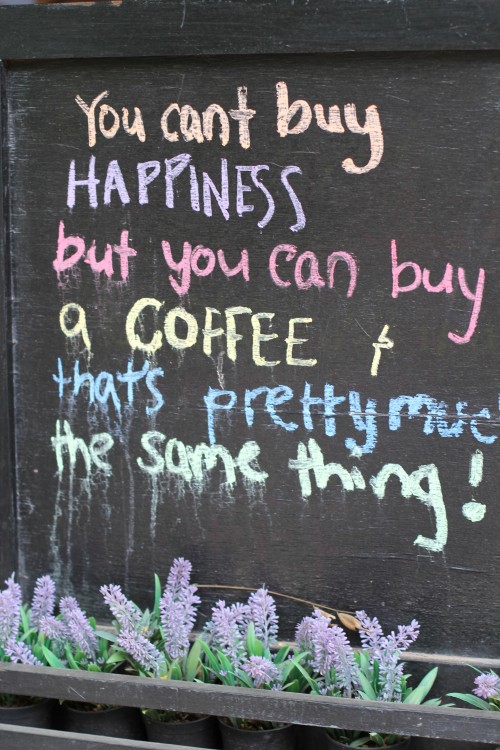 You cant buy
HAPPINESS
but you can buy
a COFFEE &
that's pretty muc
the same thing!